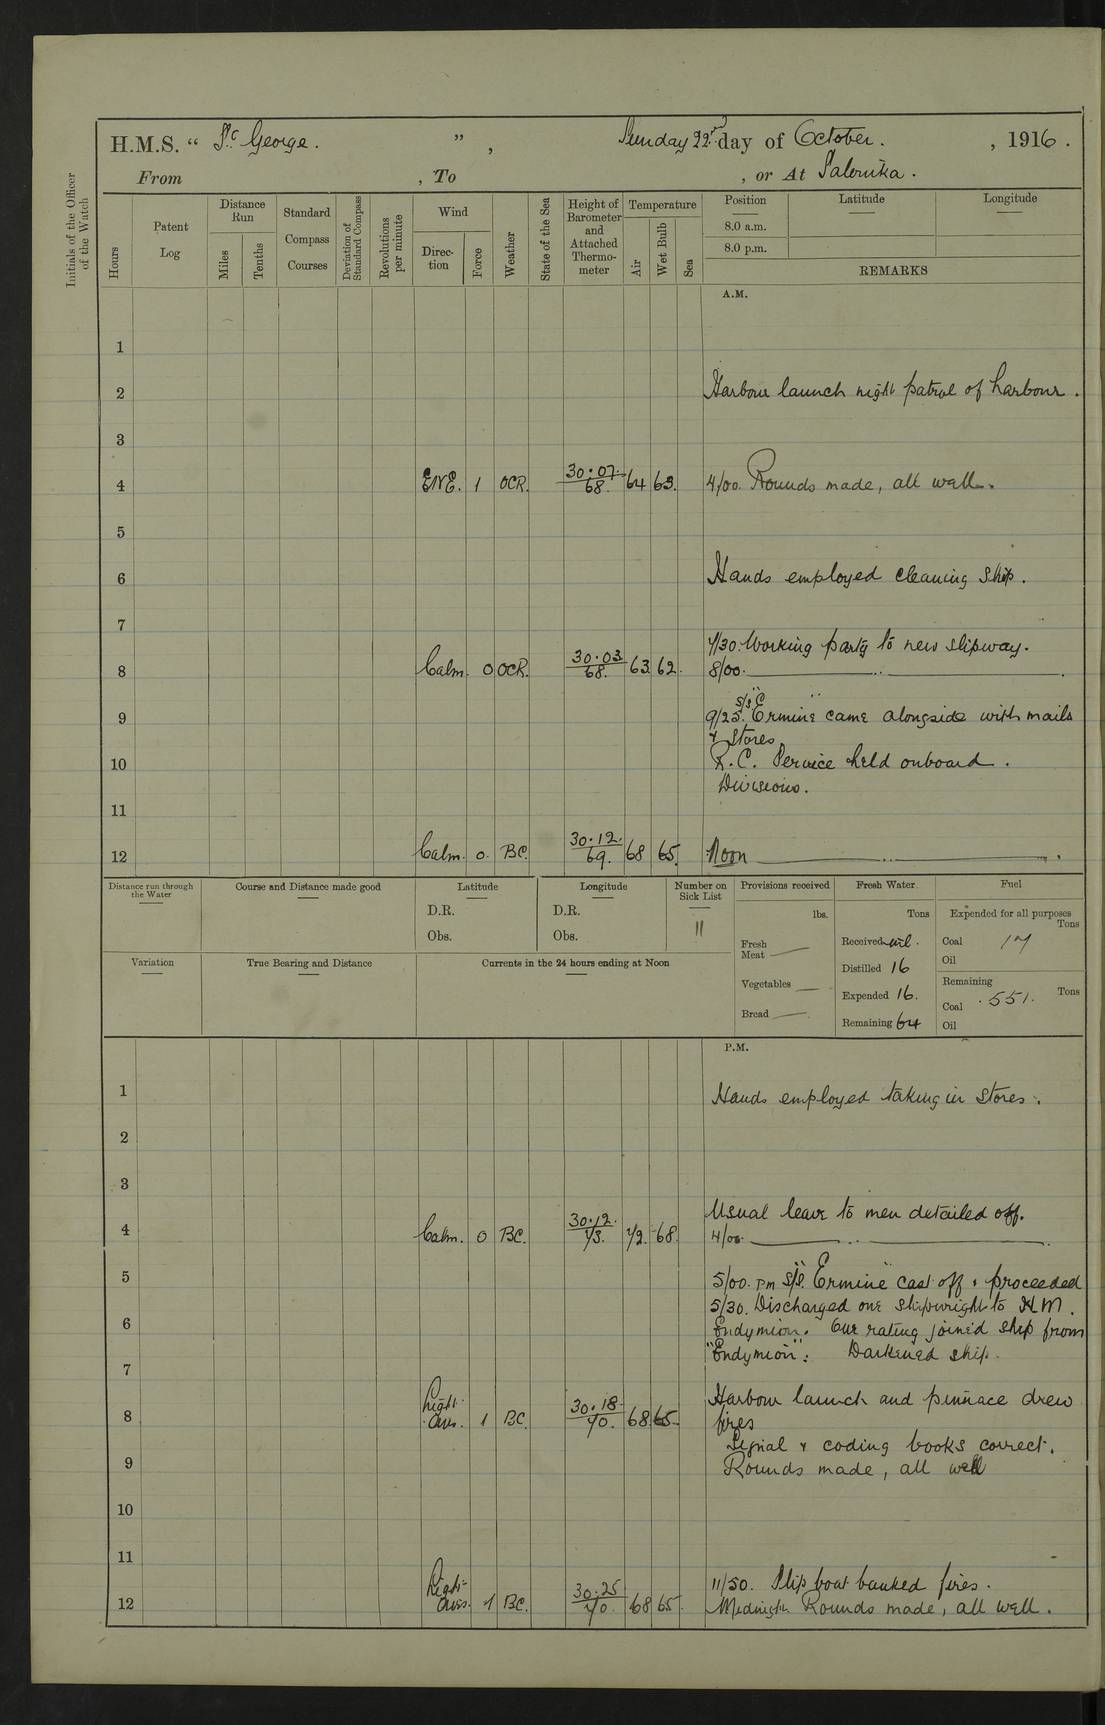 H.M.S. “ St. George. ” , Sunday 22nd. day of October. , 1916.
From , To , or At Salonika.
Initials of the Officer of the Watch
Hours
Patent Log
Distance Run
Miles
Tenths
Standard Compass Courses
Deviation of Standard Compass
Revolutions per minute
Wind
Direc-tion
Force
Weather
State of the Sea
Height of Barometer and Attached Thermo-meter
Temperature
Air
Wet Bulb
Sea
Position
8.0 a.m.
8.0 p.m.
Latitude
Longitude
REMARKS
A.M.
1
2 Harbour launch night patrol of harbour.
3
4 ENE. 1 OCR. 30.07. 68. 64 63. 4/00. Rounds made, all well.
5
6 Hands employed cleaning ship.
7
7/30. Working party to new slipway.
8 Calm. 0 OCR. 30.03 68. 63 62. 8/00.
9 9/25. s/s "Ermine" came alongside with mails
& Stores
10 R.C. Service held onboard.
Divisions.
11
12 Calm. 0. BC. 30.12. 69. 68 65. Noon
Distance run through the Water
Course and Distance made good
Latitude
D.R.
Obs.
Longitude
D.R.
Obs.
Number on Sick List
11
Provisions received
lbs.
Fresh Meat —
Vegetables —
Bread —
Fresh Water.
Tons
Received nil.
Distilled 16
Expended 16.
Remaining 64
Fuel
Expended for all purposes
Tons
Coal 17
Oil
Remaining
Coal 551. Tons
Oil
Variation
True Bearing and Distance
Currents in the 24 hours ending at Noon
P.M.
1 Hands employed taking in Stores.
2
3
Usual leave to men detailed off.
4 Calm. 0 BC. 30.12. 73. 72. 68. 4/00.
5 5/00. pm s/s. "Ermine" cast off & proceeded
5/30. Discharged one shipwright to HM.
6 Endymion. One rating joined ship from
7 "Endymion". Darkened ship.
Harbour launch and pinnace drew
8 Light airs. 1 BC. 30.18 70. 68. 65. fires
Signal & coding books correct.
9 Rounds made, all well
10
11
11/50. Slip boat banked fires.
12 Light airs. 1 BC. 30.25 70. 68 65. Midnight. Rounds made, all well.